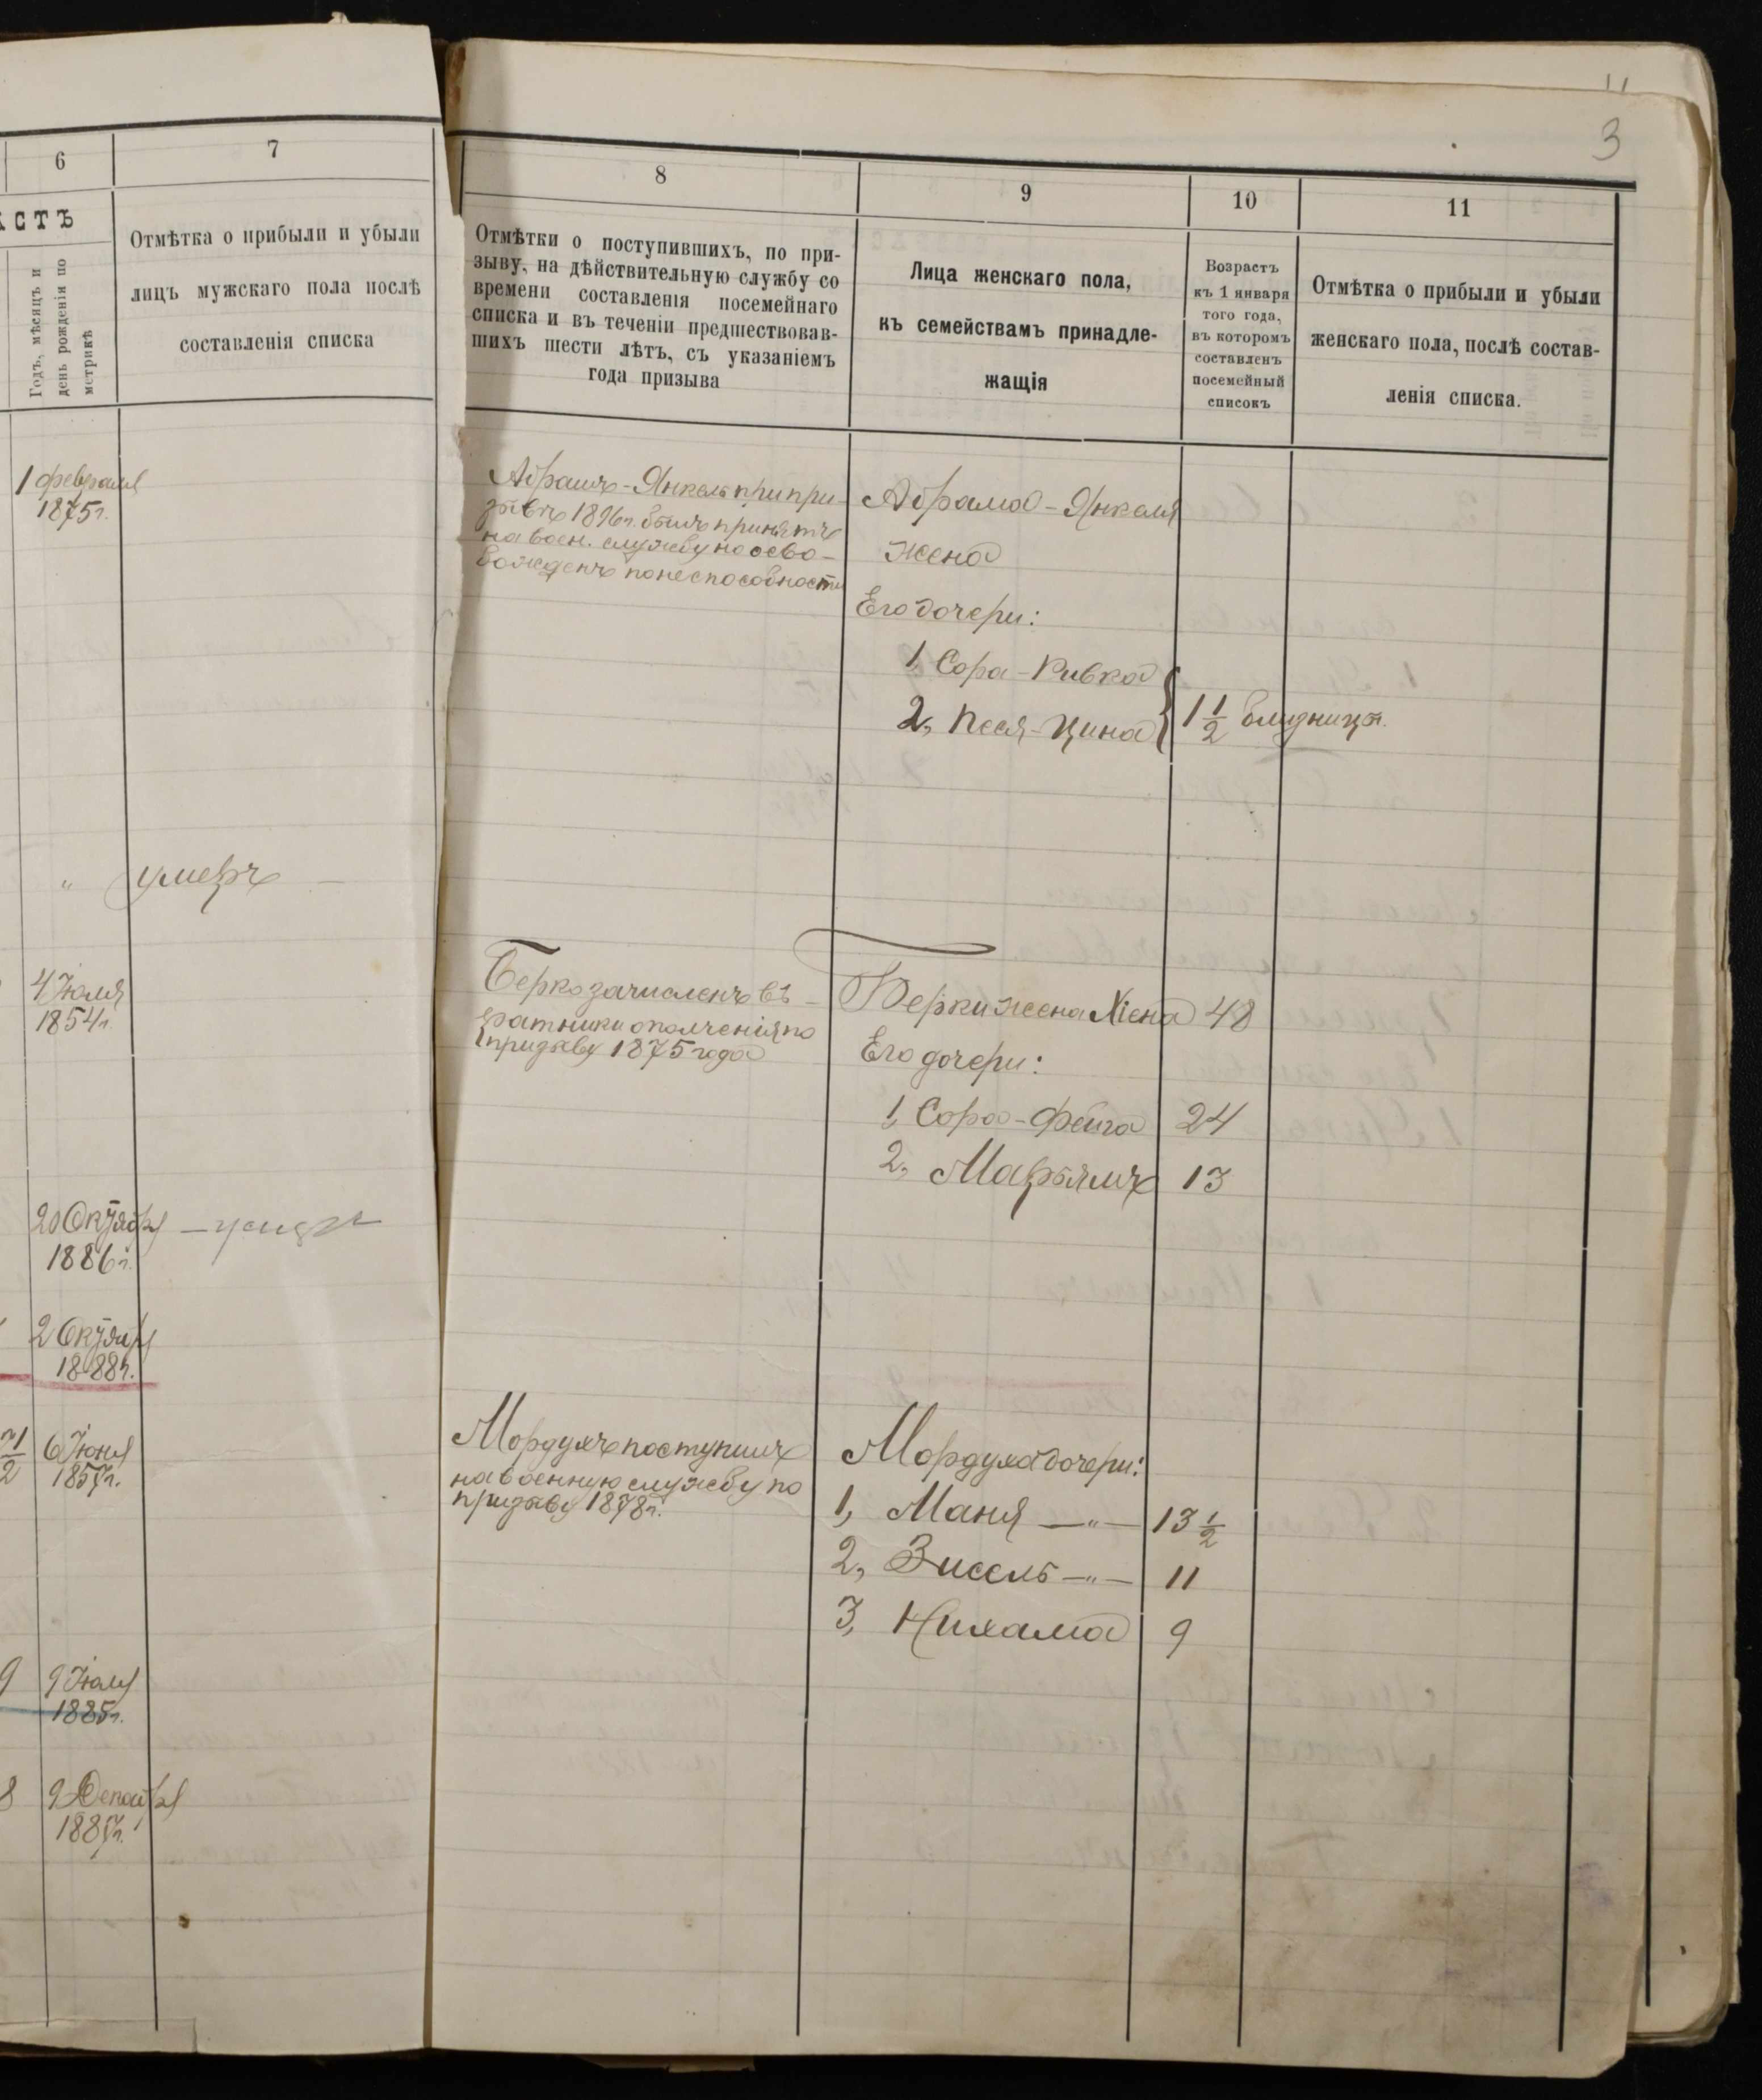 3
6
7
8
9
10
11
АСТЪ
Годъ, мѣсяцъ и
день рожденія по
метрикѣ
Отмѣтка о прибыли и убыли
лицъ мужскаго пола послѣ
составленія списка
Отмѣтки о поступившихъ, по при-
зыву, на дѣйствительную службу со
времени составленія посемейнаго
списка и въ теченіи предшествовав-
шихъ шести лѣтъ, съ указаніемъ
года призыва
Лица женскаго пола,
къ семействамъ принадле-
жащія
Возрастъ
къ 1 января
того года,
въ которомъ
составленъ
посемейный
списокъ
Отмѣтка о прибыли и убыли
женскаго пола, послѣ состав-
ленія списка.
1 февраля
1875г.
Абрамъ-Янкель при при-
зывѣ 1896г. былъ принятъ
на воен. службу но осво-
божденъ по неспособности
Абрама-Янкеля
жена
Его дочери:
1, Сора-Ривка
2, Песя-Цина
1 1/2 близницы.
" умеръ
4 Іюля
1854г.
Берко зачисленъ въ
ратники ополченія по
призыву 1875 года
Берки жена Хіена 48
Его дочери:
1, Сора-Фейга 24
2, Марьямъ 13
20 Октября
1886г.
2 Октября
1888г.
1/2 6 Іюня
1857г.
Мордухъ поступилъ
на военную службу по
призыву 1878г.
Мордуха дочери:
1, Маня —"— 13 1/2
2, Зисель —"— 11
3, Нихама 9
9 9 Іюля
1885г.
8 9 Декабря
1887г.